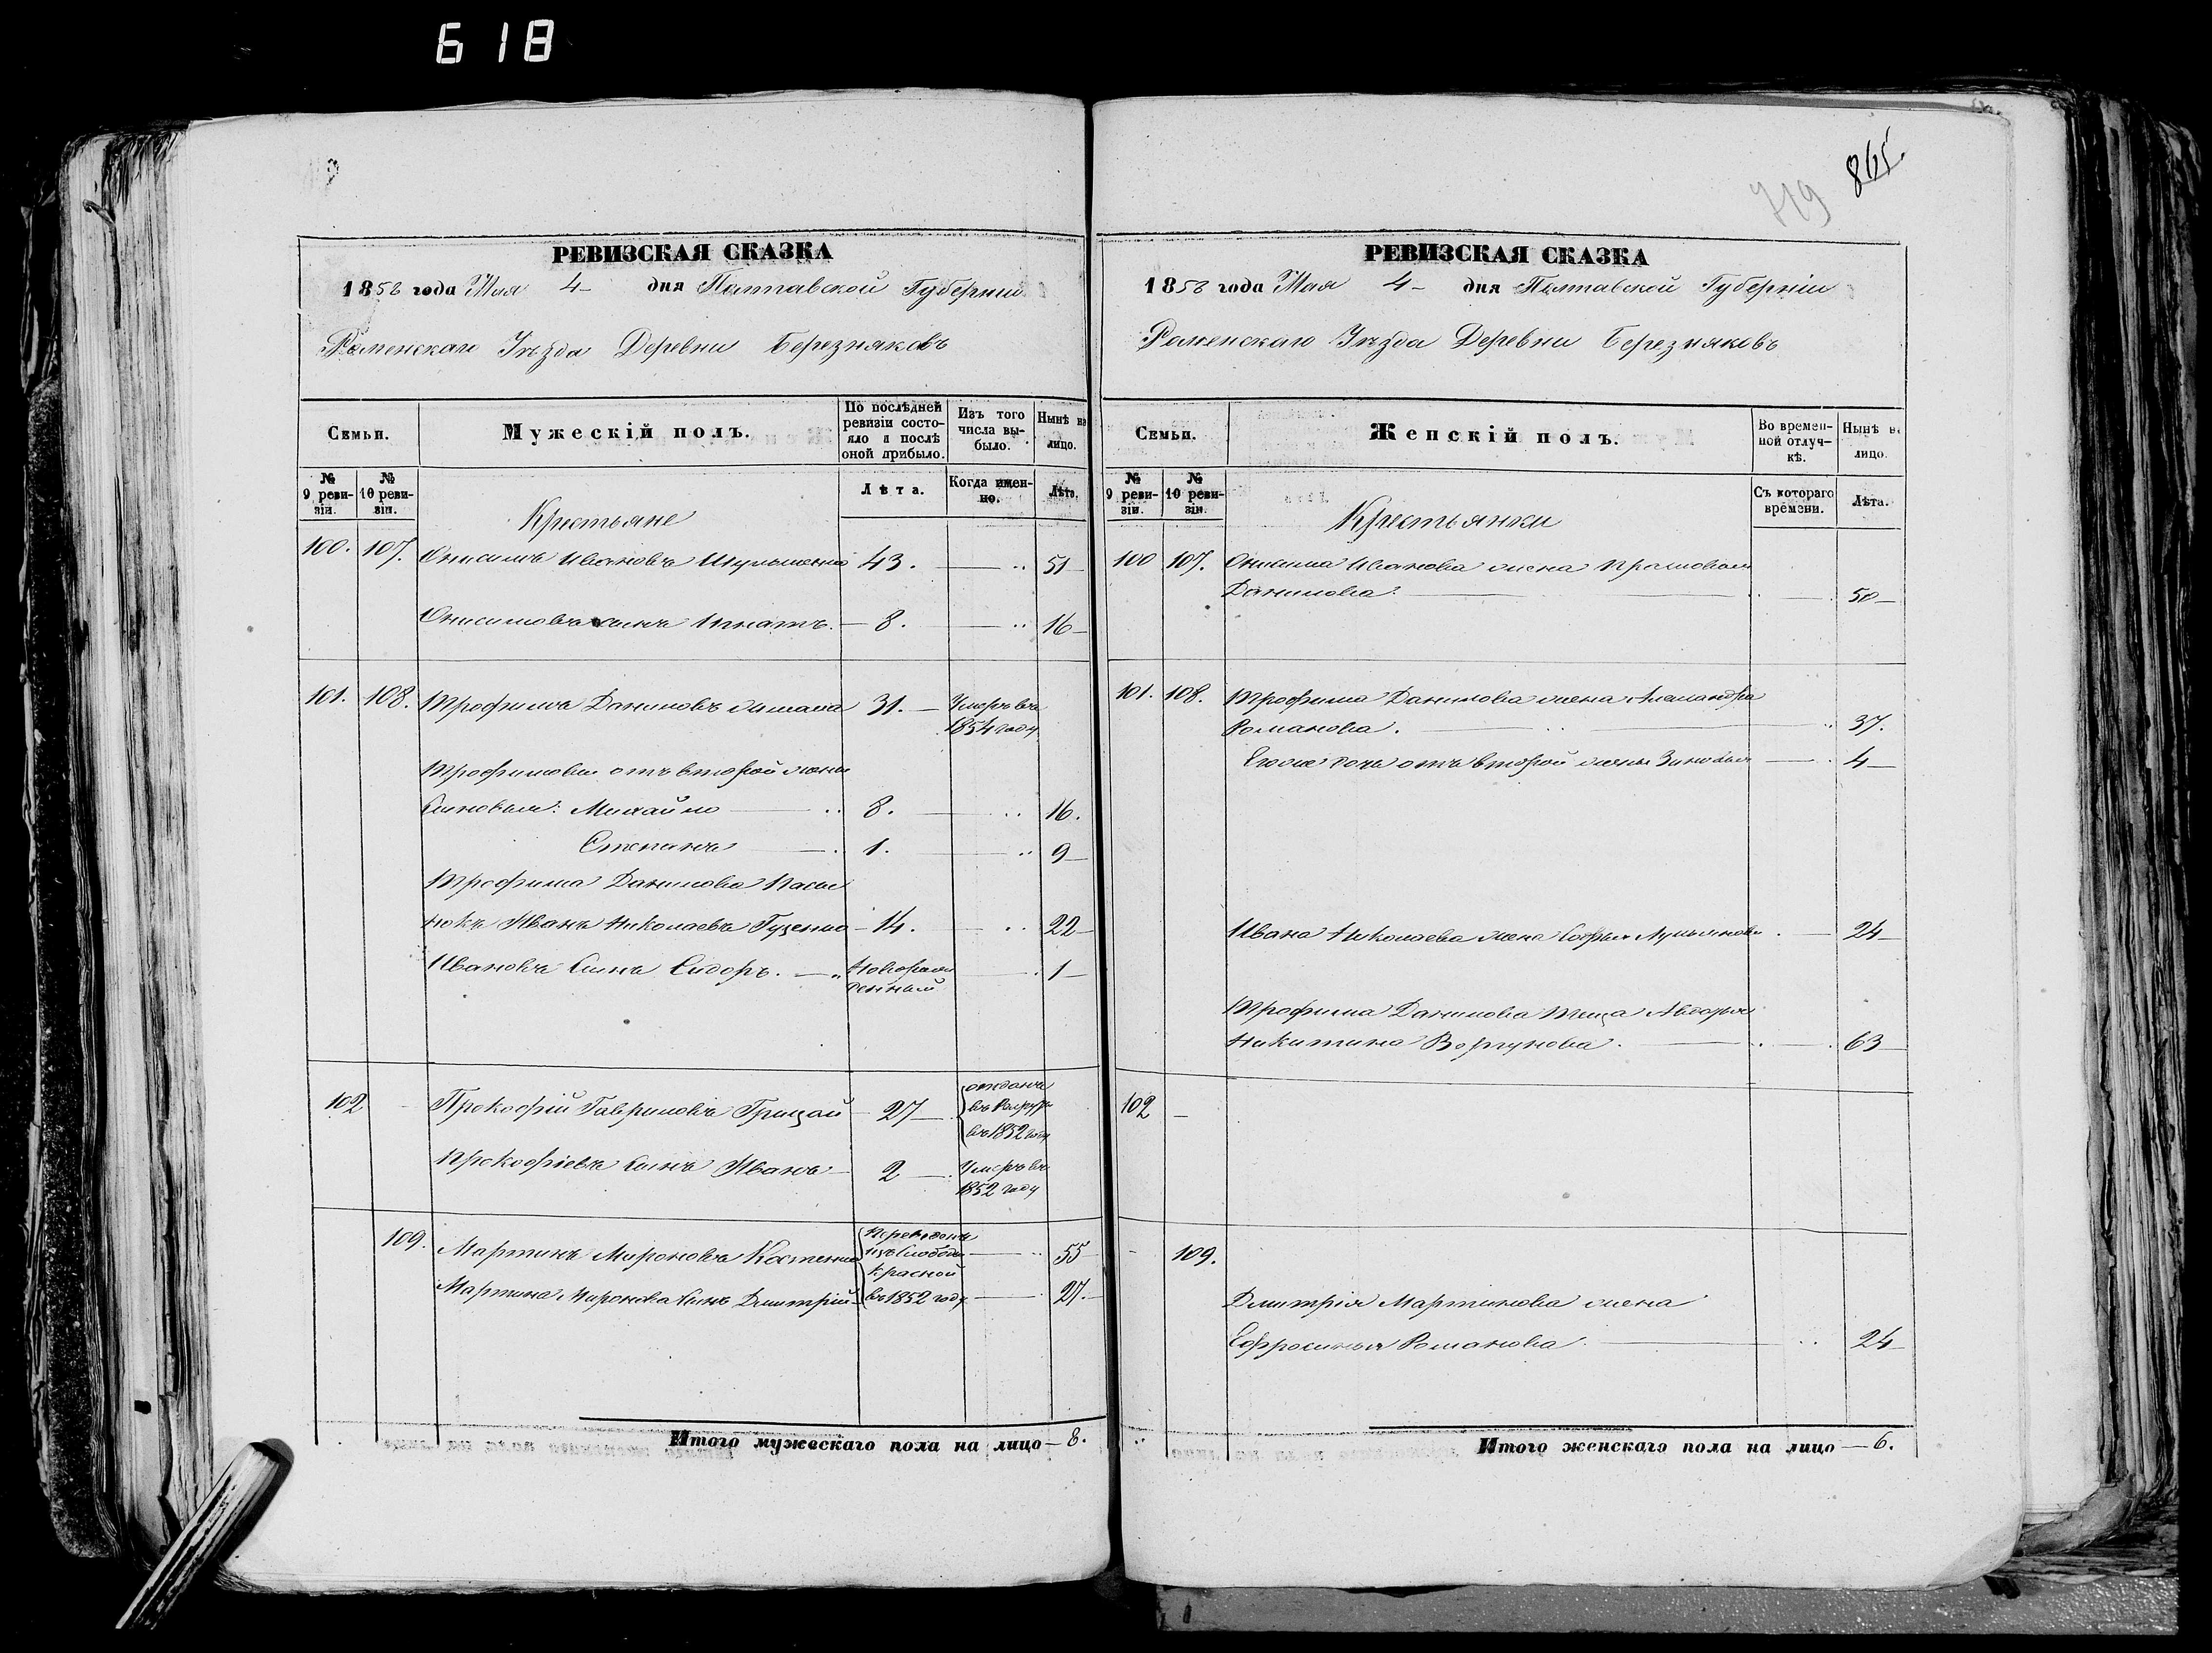 618
РЕВИЗСКАЯ СКАЗКА
1858 года Мая 4 дня Полтавской Губерніи
Роменскаго Уѣзда Деревни Березняковъ
Семьи.
Мужескій полъ.
По послѣдней ревизіи состояло и послѣ оной прибыло.
Изъ того числа выбыло.
Нынѣ на лицо.
№ 9 ревизіи.
№ 10 ревизіи.
Лѣта.
Когда именно.
Лѣта.
Крестьяне
100. 107. Онисимъ Ивановъ 43. — 51
Онисимовъ сынъ Игнатъ. — 8. — 16
101. 108. Трофимъ Даниловъ 31. — Умеръ въ
1854 году
Трофимовы отъ второй жены
Сыновья: Михайло 8. — 16.
Степанъ 1. — 9
Трофима Данилова Пасы
нокъ Иванъ Николаевъ Гуценко — 14. — 22
Ивановъ Сынъ Сидоръ. — Новорож
денный — 1
102 Прокофій Гавриловъ Грицай 27 — отданъ
въ Рекруты
въ 1852 году
Прокофіевъ Сынъ Иванъ 2 — Умеръ въ
1852 году
109. Мартинъ Мироновъ Костенко Переведенъ
изъ Слободы — 55
Красной
Мартина Миронова Сынъ Дмитрій въ 1852 году — 27.
Итого мужескаго пола на лицо — 8.
719 865.
РЕВИЗСКАЯ СКАЗКА
1858 года Мая 4 дня Полтавской Губерніи
Роменскаго Уѣзда Деревни Березняковъ
Семьи.
Женскій полъ.
Во временной отлучкѣ.
Нынѣ на лицо.
№ 9 ревизіи.
№ 10 ревизіи.
Съ котораго времени.
Лѣта.
Крестьянки
100 107. Онисима Иванова жена Прасковья
Данилова. — 50
101. 108. Трофима Данилова жена Александра
Романова. — 37.
Его же дочь отъ второй жены Зиновья — 4
Ивана Николаева жена Софья Лукьянова — 24
Трофима Данилова Теща Авдотья
Никитина — 63
102 —
109.
Дмитрія Мартинова жена
Ефросинья Романова — 24
Итого женскаго пола на лицо — 6.